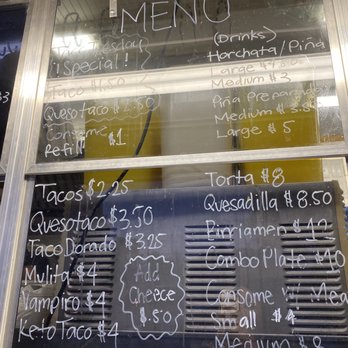 MENU
Taco Tuesday
¡Special!
Taco $1.50
Quesotaco $2.50
Consome
Refill $1
(Drinks)
Horchata/Piña
Large
Medium $3
Piña Preparada
Medium $3.50
Large $5
Tacos $2.25
Quesotaco $3.50
Taco Dorado $3.25
Mulita $4
Vampiro $4
Keto Taco $4
Add
Cheece
$.50
Torta $8
Quesadilla $8.50
Birriamen $12
Combo Plate $10
Consome w/ Mea
Small $4
Medium $8